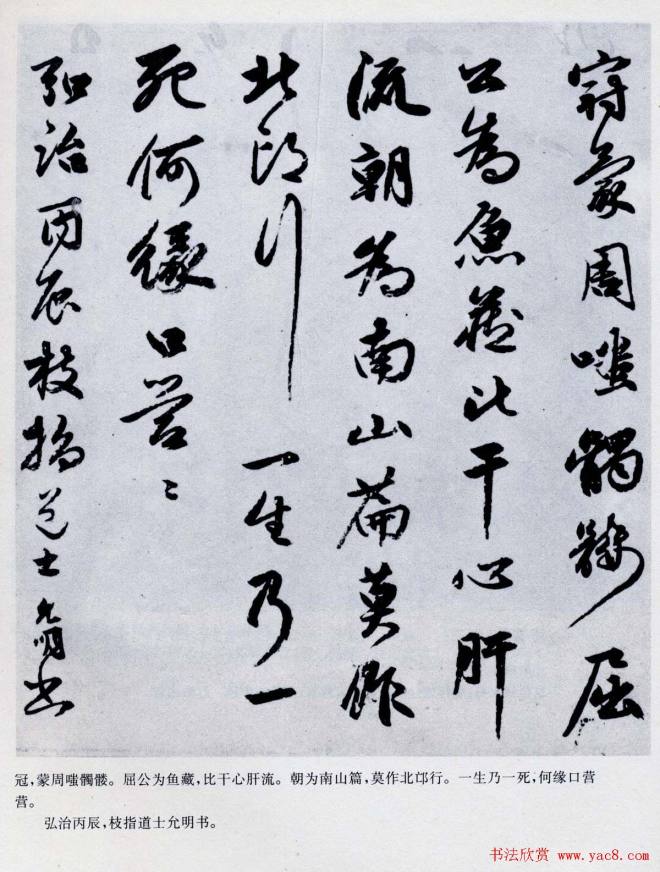 冠蒙周嗤髑髏屈
公為魚藏比干心肝
流朝為南山篇莫作
北邙行一生乃一
死何緣口營〻
弘治丙辰枝指道士允明書
冠,蒙周嗤髑髅。屈公为鱼藏,比干心肝流。朝为南山篇,莫作北邙行。一生乃一死,何缘口营
营。
弘治丙辰,枝指道士允明书。
书法欣赏 www.yac8.com